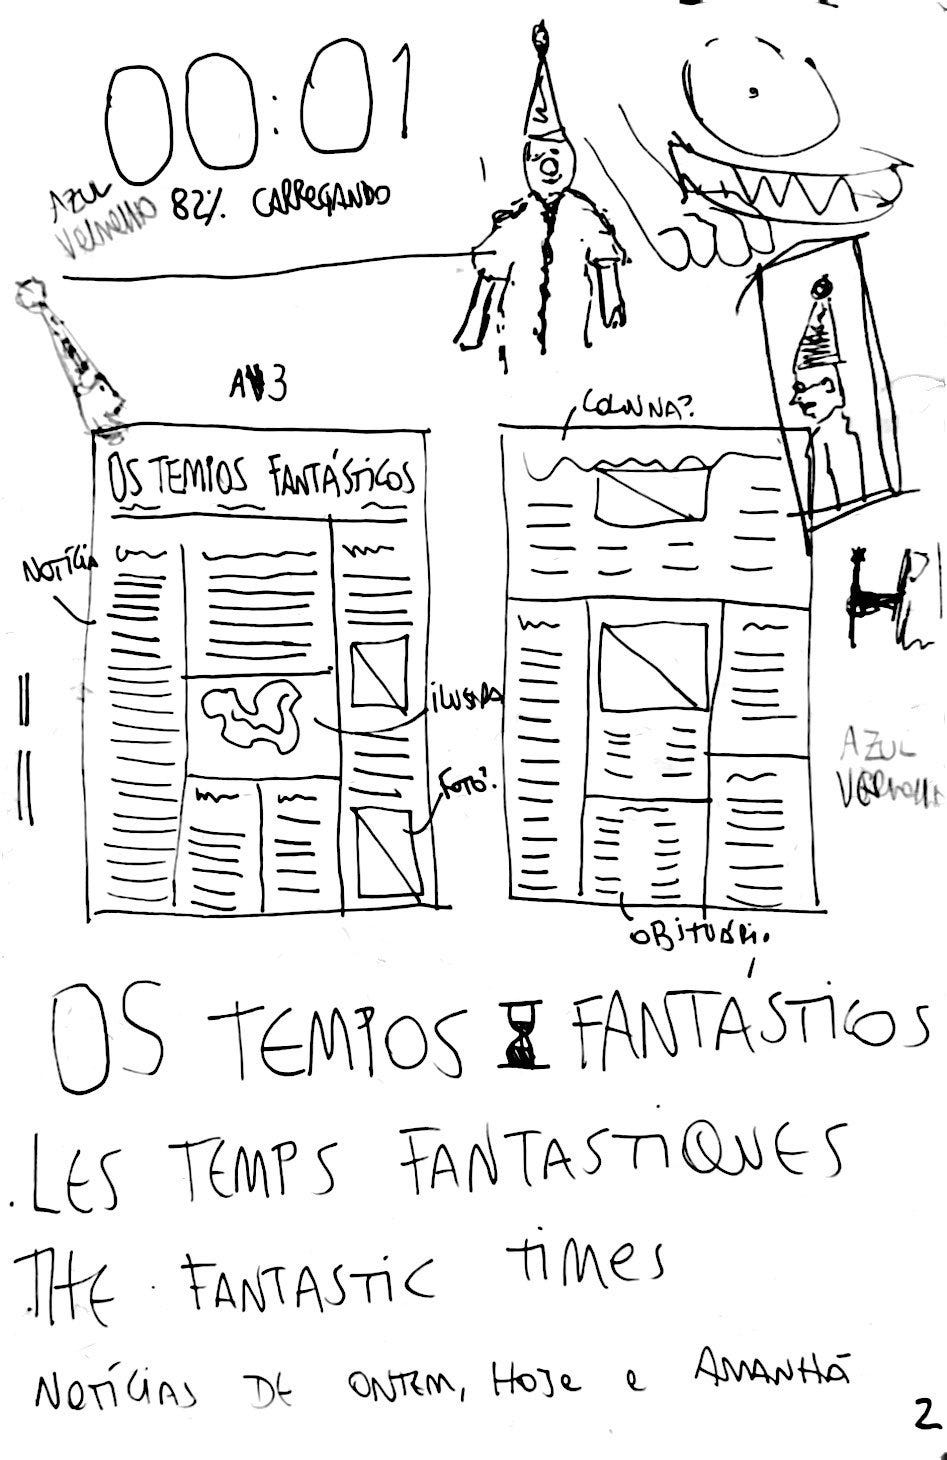 00:01
AZUL
VERMELHO
82% CARREGANDO
A3
COLUNA?
OS TEMPOS FANTÁSTICOS
NOTÍCIA
FOTO?
AZUL
VERMELHO
OBITUÁRIO
OS TEMPOS FANTÁSTICOS
LES TEMPS FANTASTIQUES
THE FANTASTIC TIMES
NOTÍCIAS DE ONTEM, HOJE E AMANHÃ
2